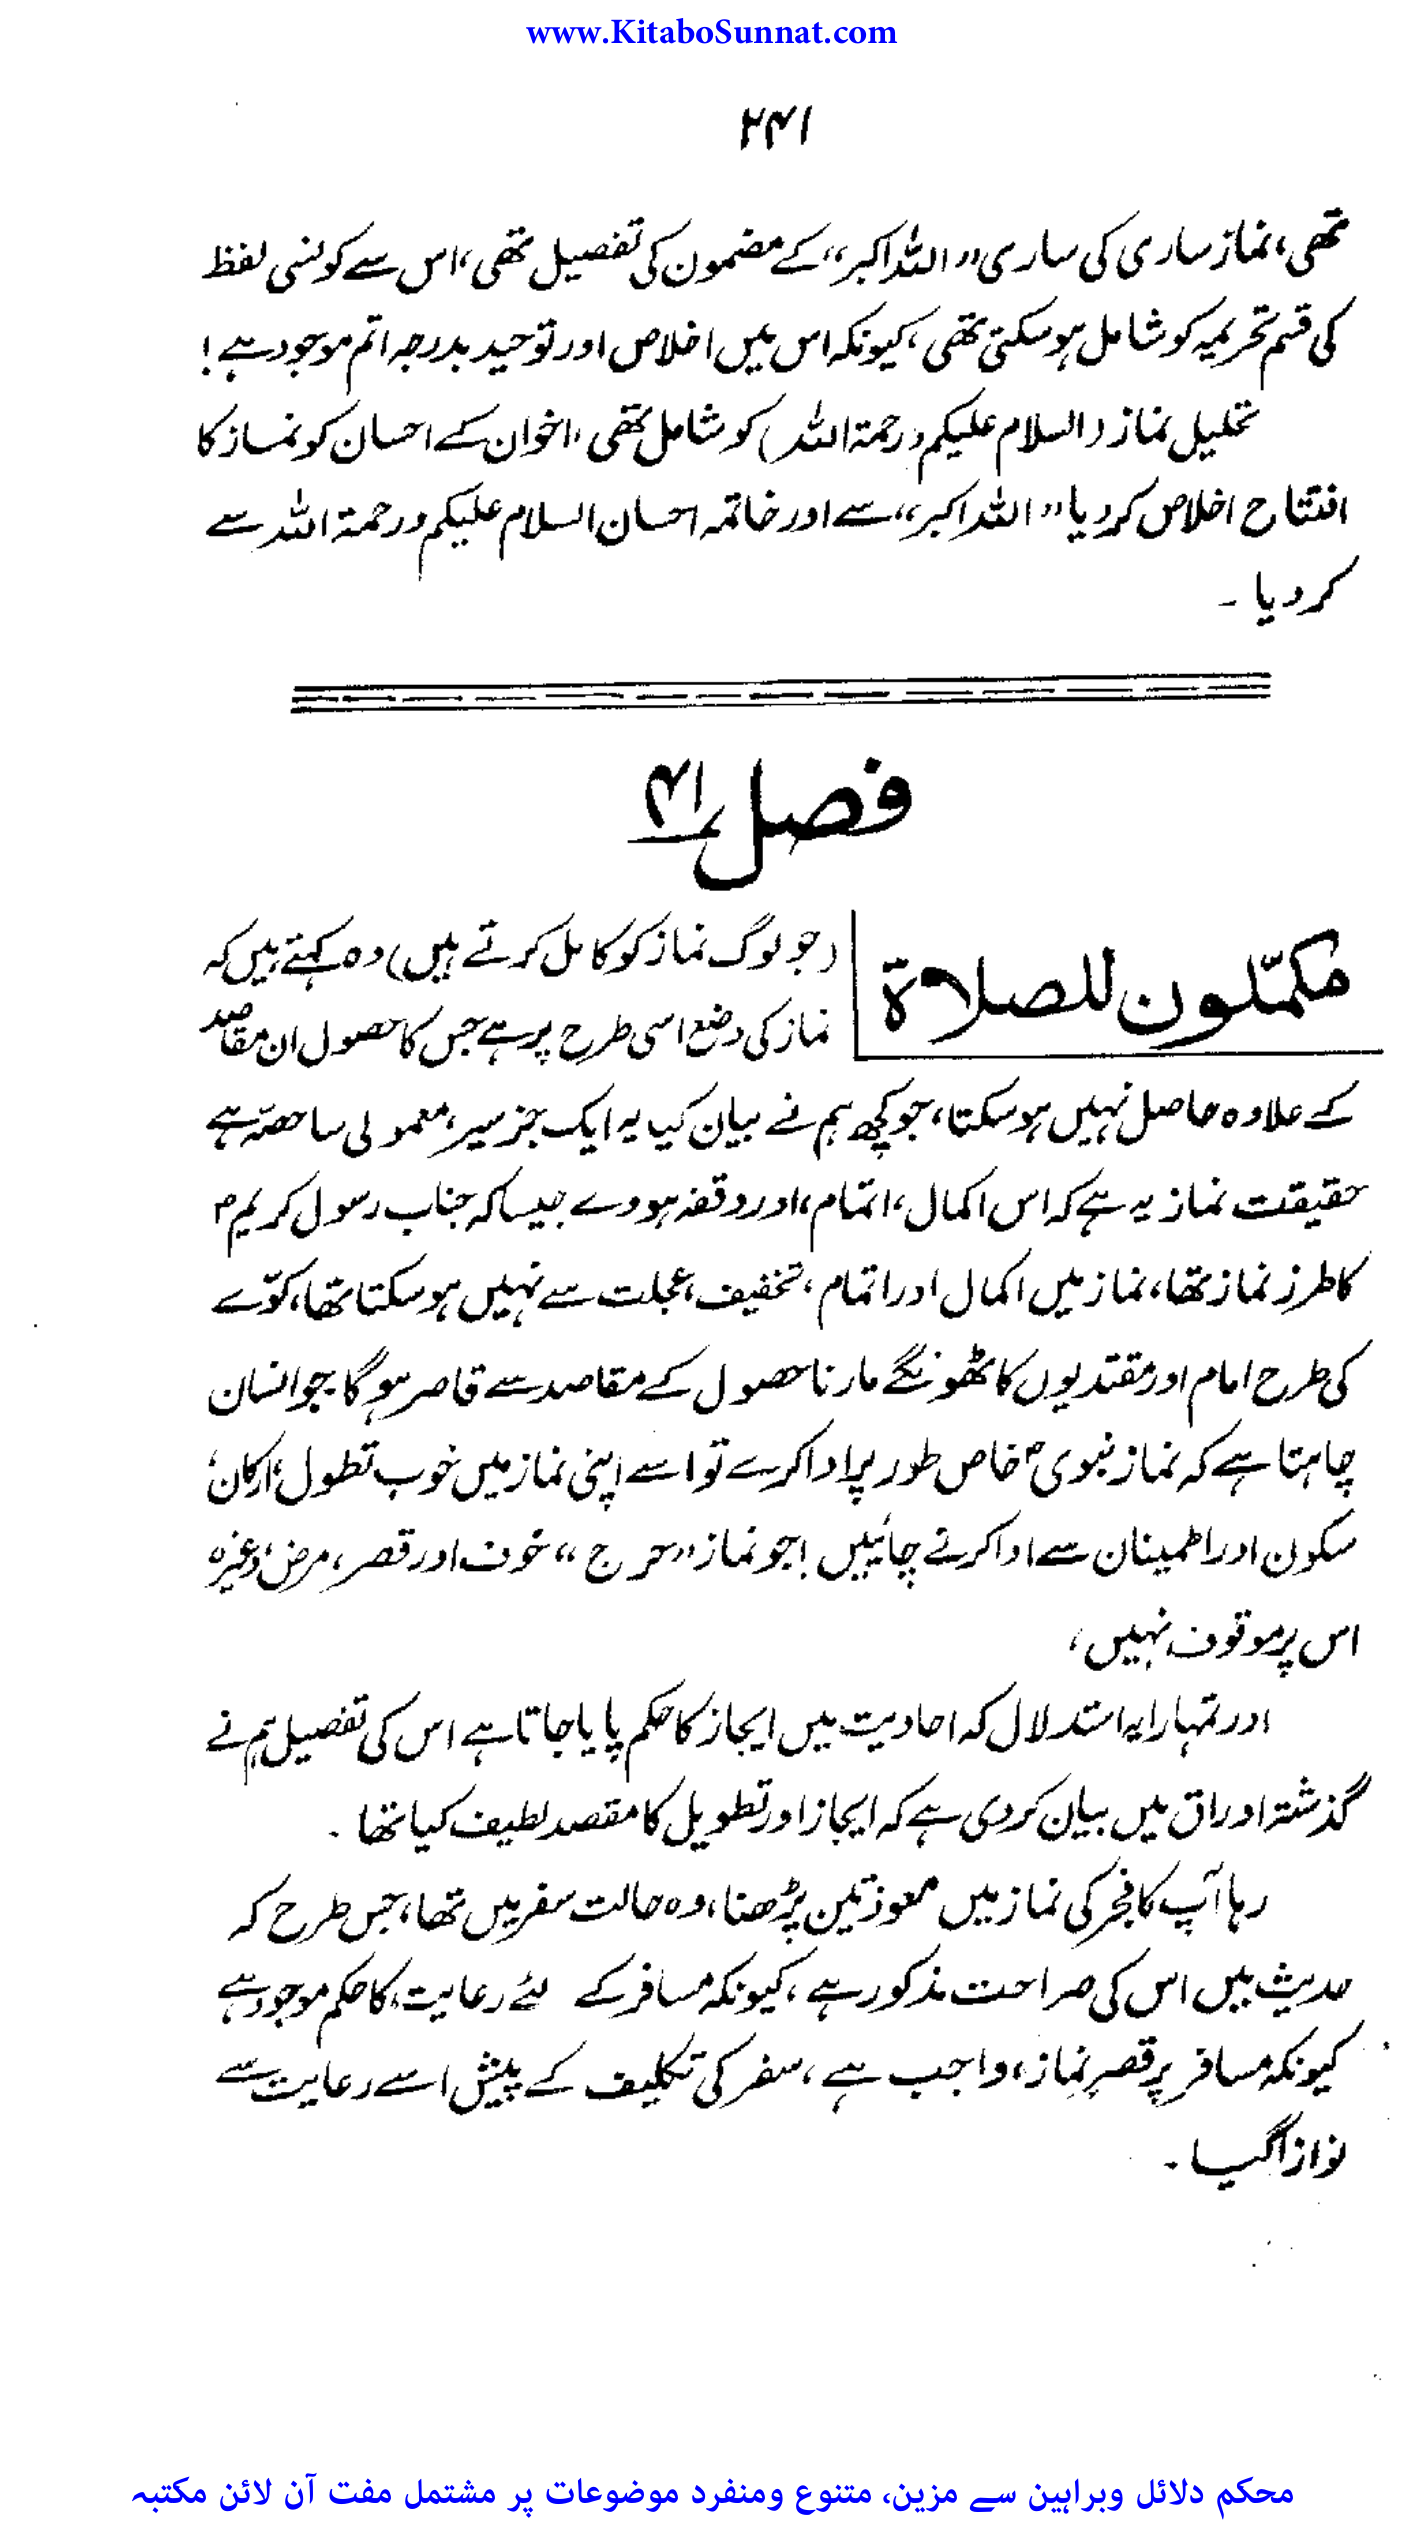 www.KitaboSunnat.com
۲۴۱
تھی، نماز ساری کی ساری "اللہ اکبر" کے مضمون کی تفصیل تھی، اس سے کونسی لفظ
کی قسم تحریمہ کو شامل ہوسکتی تھی، کیونکہ اس میں اخلاص اور توحید بدرجہ اتم موجود ہے!
تحلیل نماز (السلام علیکم ورحمۃ اللہ) کو شامل تھی، اخوان کے احسان کو نماز کا
افتتاح اخلاص کردیا "اللہ اکبر" سے اور خاتمہ احسان السلام علیکم ورحمۃ اللہ سے
کردیا۔
فصل ۴۱
مکمّلون للصلاۃ
(جو لوگ نماز کو کامل کرتے ہیں) وہ کہتے ہیں کہ
نماز کی وضع اسی طرح پر ہے جس کا حصول ان مقاصد
کے علاوہ حاصل نہیں ہوسکتا، جو کچھ ہم نے بیان کیا یہ ایک جز سیر، معمولی سا حصّہ ہے
حقیقت نماز یہ ہے کہ اس اکمال، اتمام، اور وقفہ ہووے جیسا کہ جناب رسول کریم ؐ
کا طرز نماز تھا، نماز میں اکمال اور اتمام، تخفیف، عجلت سے نہیں ہوسکتا تھا، کوّے
کی طرح امام اور مقتدیوں کا ٹھونگے مارنا حصول کے مقاصد سے قاصر ہوگا جو انسان
چاہتا ہے کہ نماز نبوی ؐ خاص طور پر ادا کرے تو اسے اپنی نماز میں خوب تطول، ارکان،
سکون اور اطمینان سے ادا کرنے چاہئیں! جو نماز "حرج" خوف اور قصر، مرض، وغیرہ
اس پر موقوف نہیں،
اور تمہارا یہ استدلال کہ احادیث میں ایجاز کا حکم پایا جاتا ہے اس کی تفصیل ہم نے
گذشتہ اوراق میں بیان کردی ہے کہ ایجاز اور تطویل کا مقصد لطیف کیا تھا۔
رہا آپ کا فجر کی نماز میں معوذتین پڑھنا، وہ حالت سفر میں تھا، جس طرح کہ
حدیث میں اس کی صراحت مذکور ہے، کیونکہ مسافر کے لئے رعایت کا حکم موجود ہے
کیونکہ مسافر پر قصر نماز، واجب ہے، سفر کی تکلیف کے پیش اسے رعایت سے
نوازا گیا۔
محکم دلائل وبراہین سے مزین، متنوع ومنفرد موضوعات پر مشتمل مفت آن لائن مکتبہ